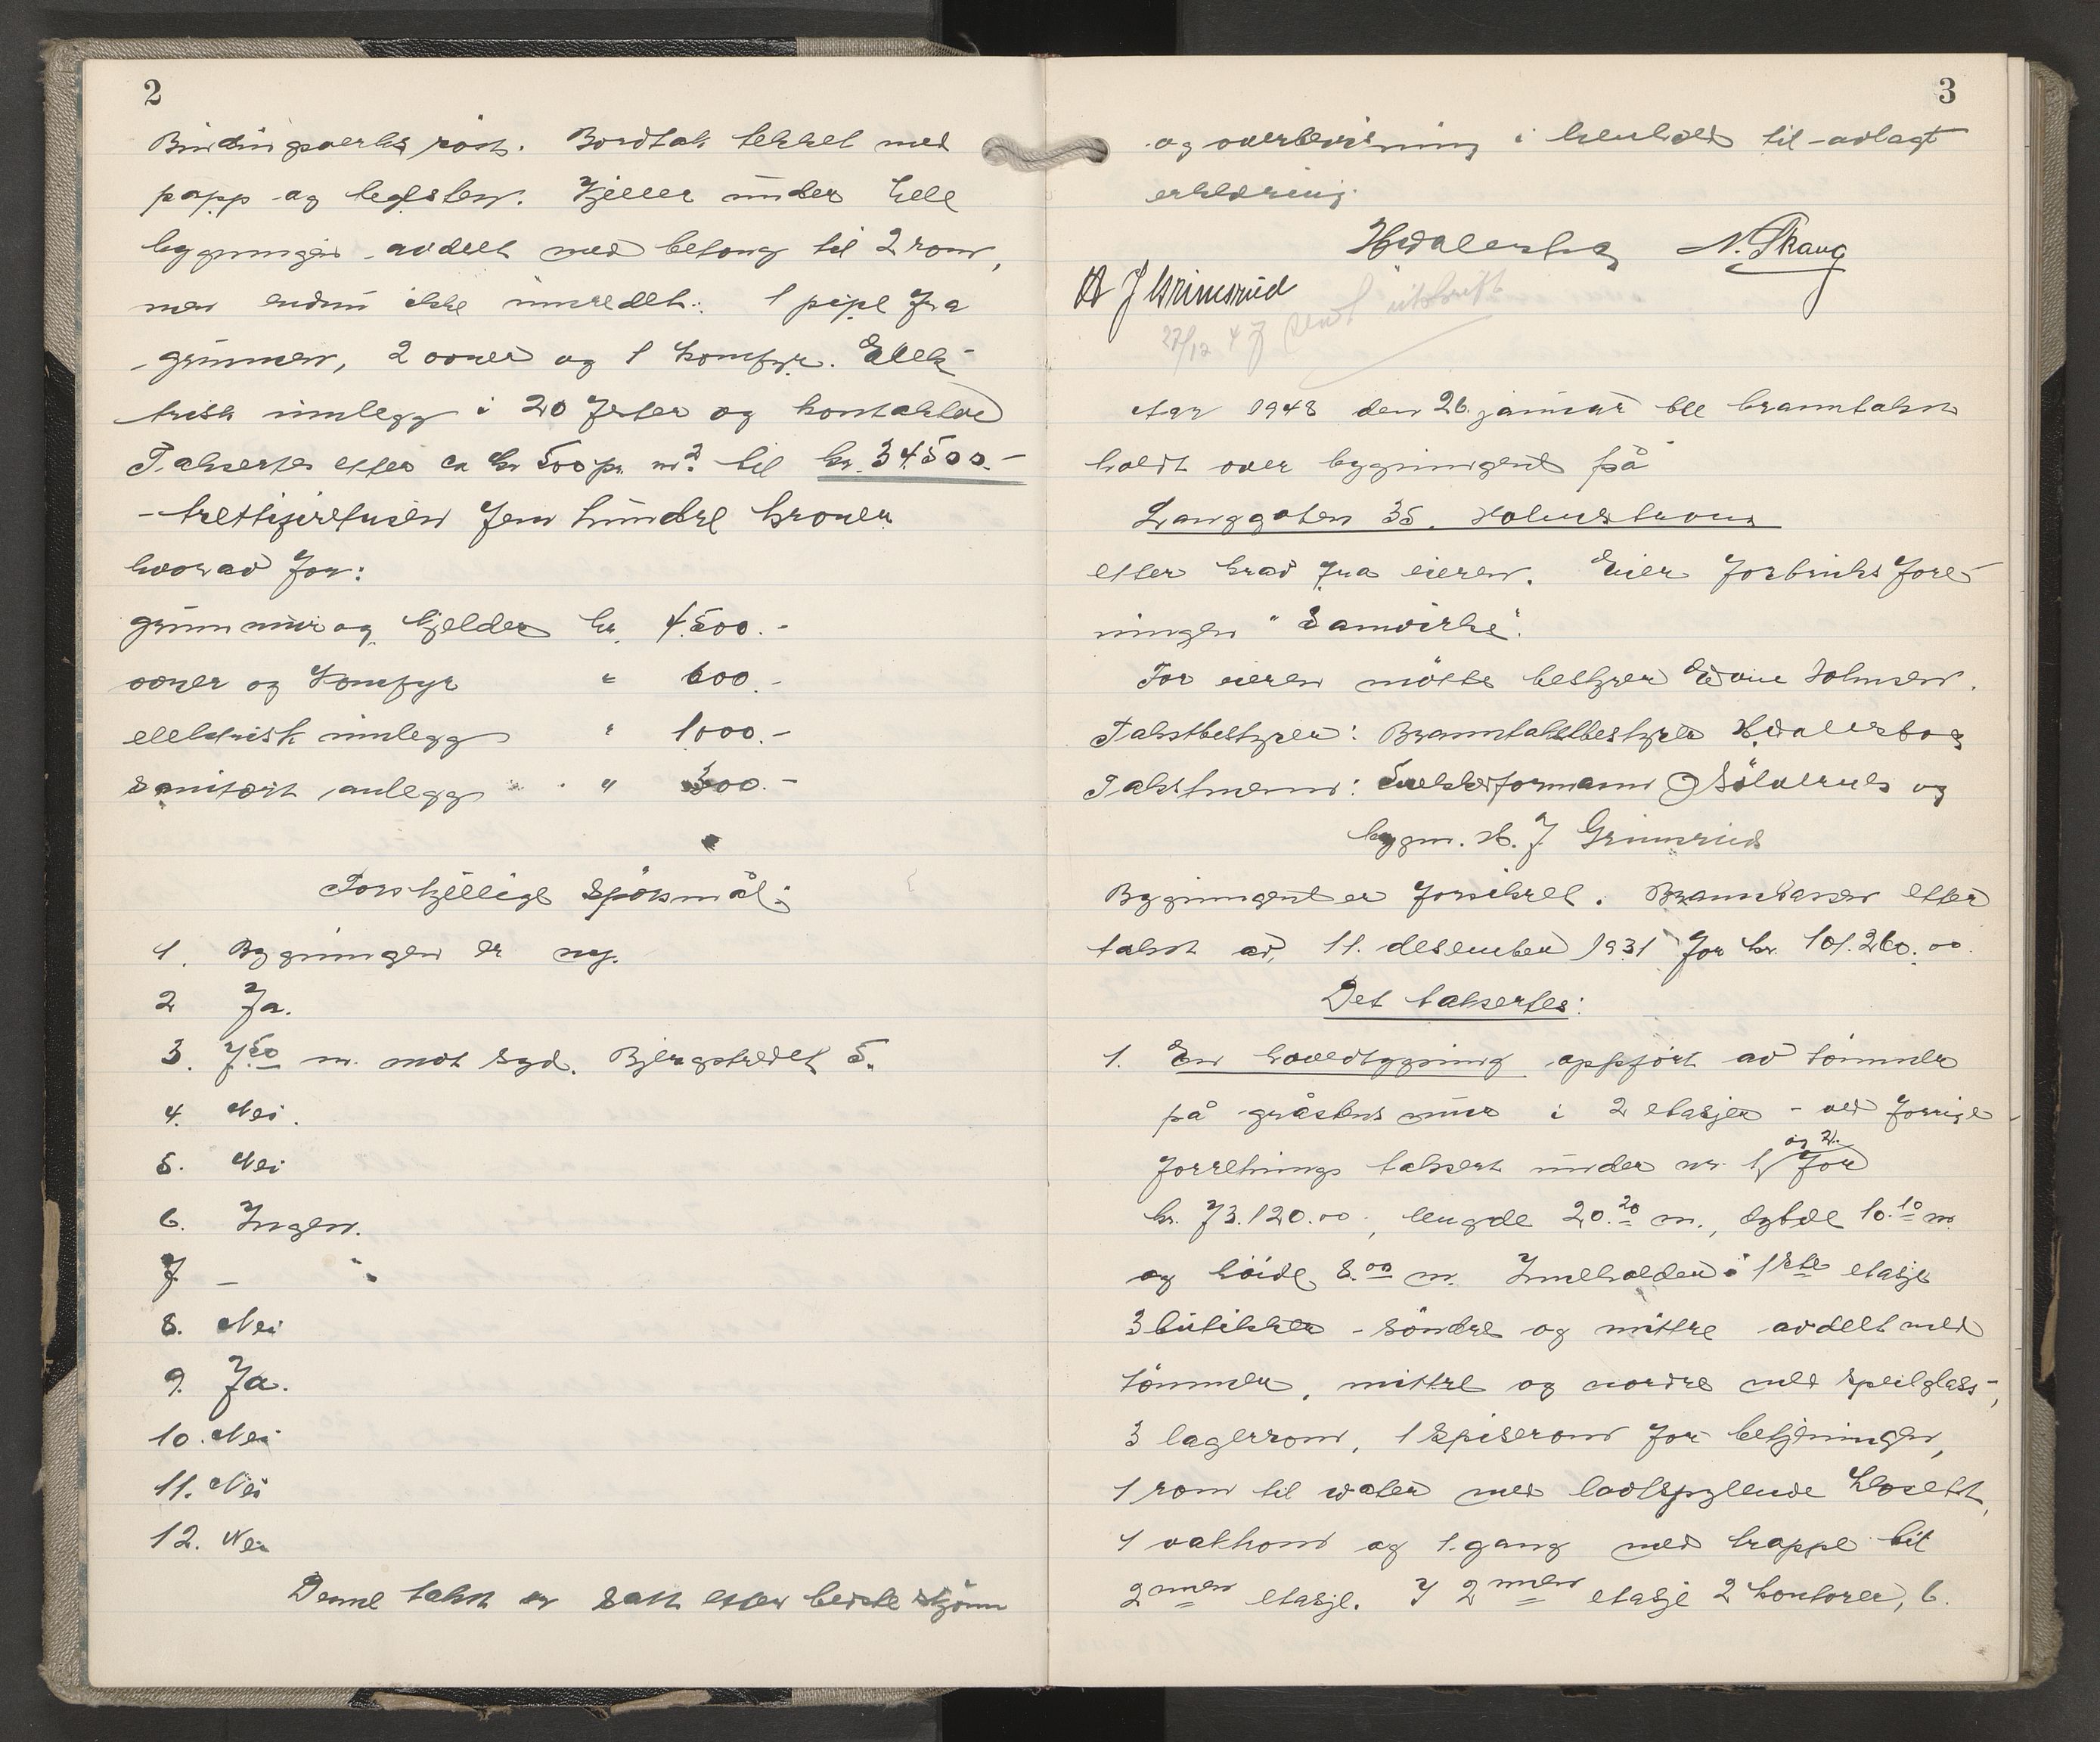 2
Bindingsverks röst. Bordtak tekket med
papp og teglsten. Kjeller under hele
bygningen avdelt med betong til 2 rom,
men endnu ikke innredet. 1 pipe fra
grunnen, 2 ovner og 1 komfyr. Elek-
trisk innlegg i 20 fester og kontakter
Takseres efter ca kr 500 pr. m² til kr. 34500.-
- trettifiretusen fem hundre kroner
hvorav for:
grunnmur og kjelder kr. 4.500.-
ovner og komfyr " 600.-
elektrisk innlegg " 1000.-
Sanitært anlegg " 300.-
Forskjellige spörsmål:
1. Bygningen er ny.
2 Ja.
3. 7.50 m. mot syd. Bjergstredet 5.
4. Nei.
5. Nei
6. Ingen.
7 - "
8. Nei
9. Ja.
10. Nei
11. Nei
12. Nei
Denne takst er satt efter beste skjönn
3
og overbevisning i henhold til avlagt
erklæring.
N. Skaug
H J Grimsrud
22/12 47 sendt utskrift
Aar 1948 den 26. januar ble branntakst
holdt over bygningene på
Langgaten 35. Holmestrand
efter krav fra eieren. Eier Forbruksfore-
ningen "Samvirke".
For eieren mötte bestyrer Holmsen.
Takstbestyrer: Branntakstbestyrer
Takstmenn: Snekkerformann O Sölverud og
bygm. H. J Grimsrud
Bygningene er forsikret. Brannkassen efter
takst av 11. desember 1931 for kr. 101.260.00
Det takseres:
1. En hovedbygning oppfört av tömmer
på gråstens mur i 2 etasjer - ved forrige
og 2.
forretnings taksert under nr. 1, for
kr. 73.120.00, lengde 20.20 m., dybde 10.10 m
og höide 8.00 m. Inneholder i 1ste etasje
3 butikker - söndre og mittre avdelt med
tömmer, mittre og nordre med speilglass-,
3 lagerrom, 1 spiserom for betjeningen,
1 rom til water med lodtspylende klosett,
1 og 1. gang med trappe til
2nen etasje. I 2nen etasje 2 kontorer, 6.